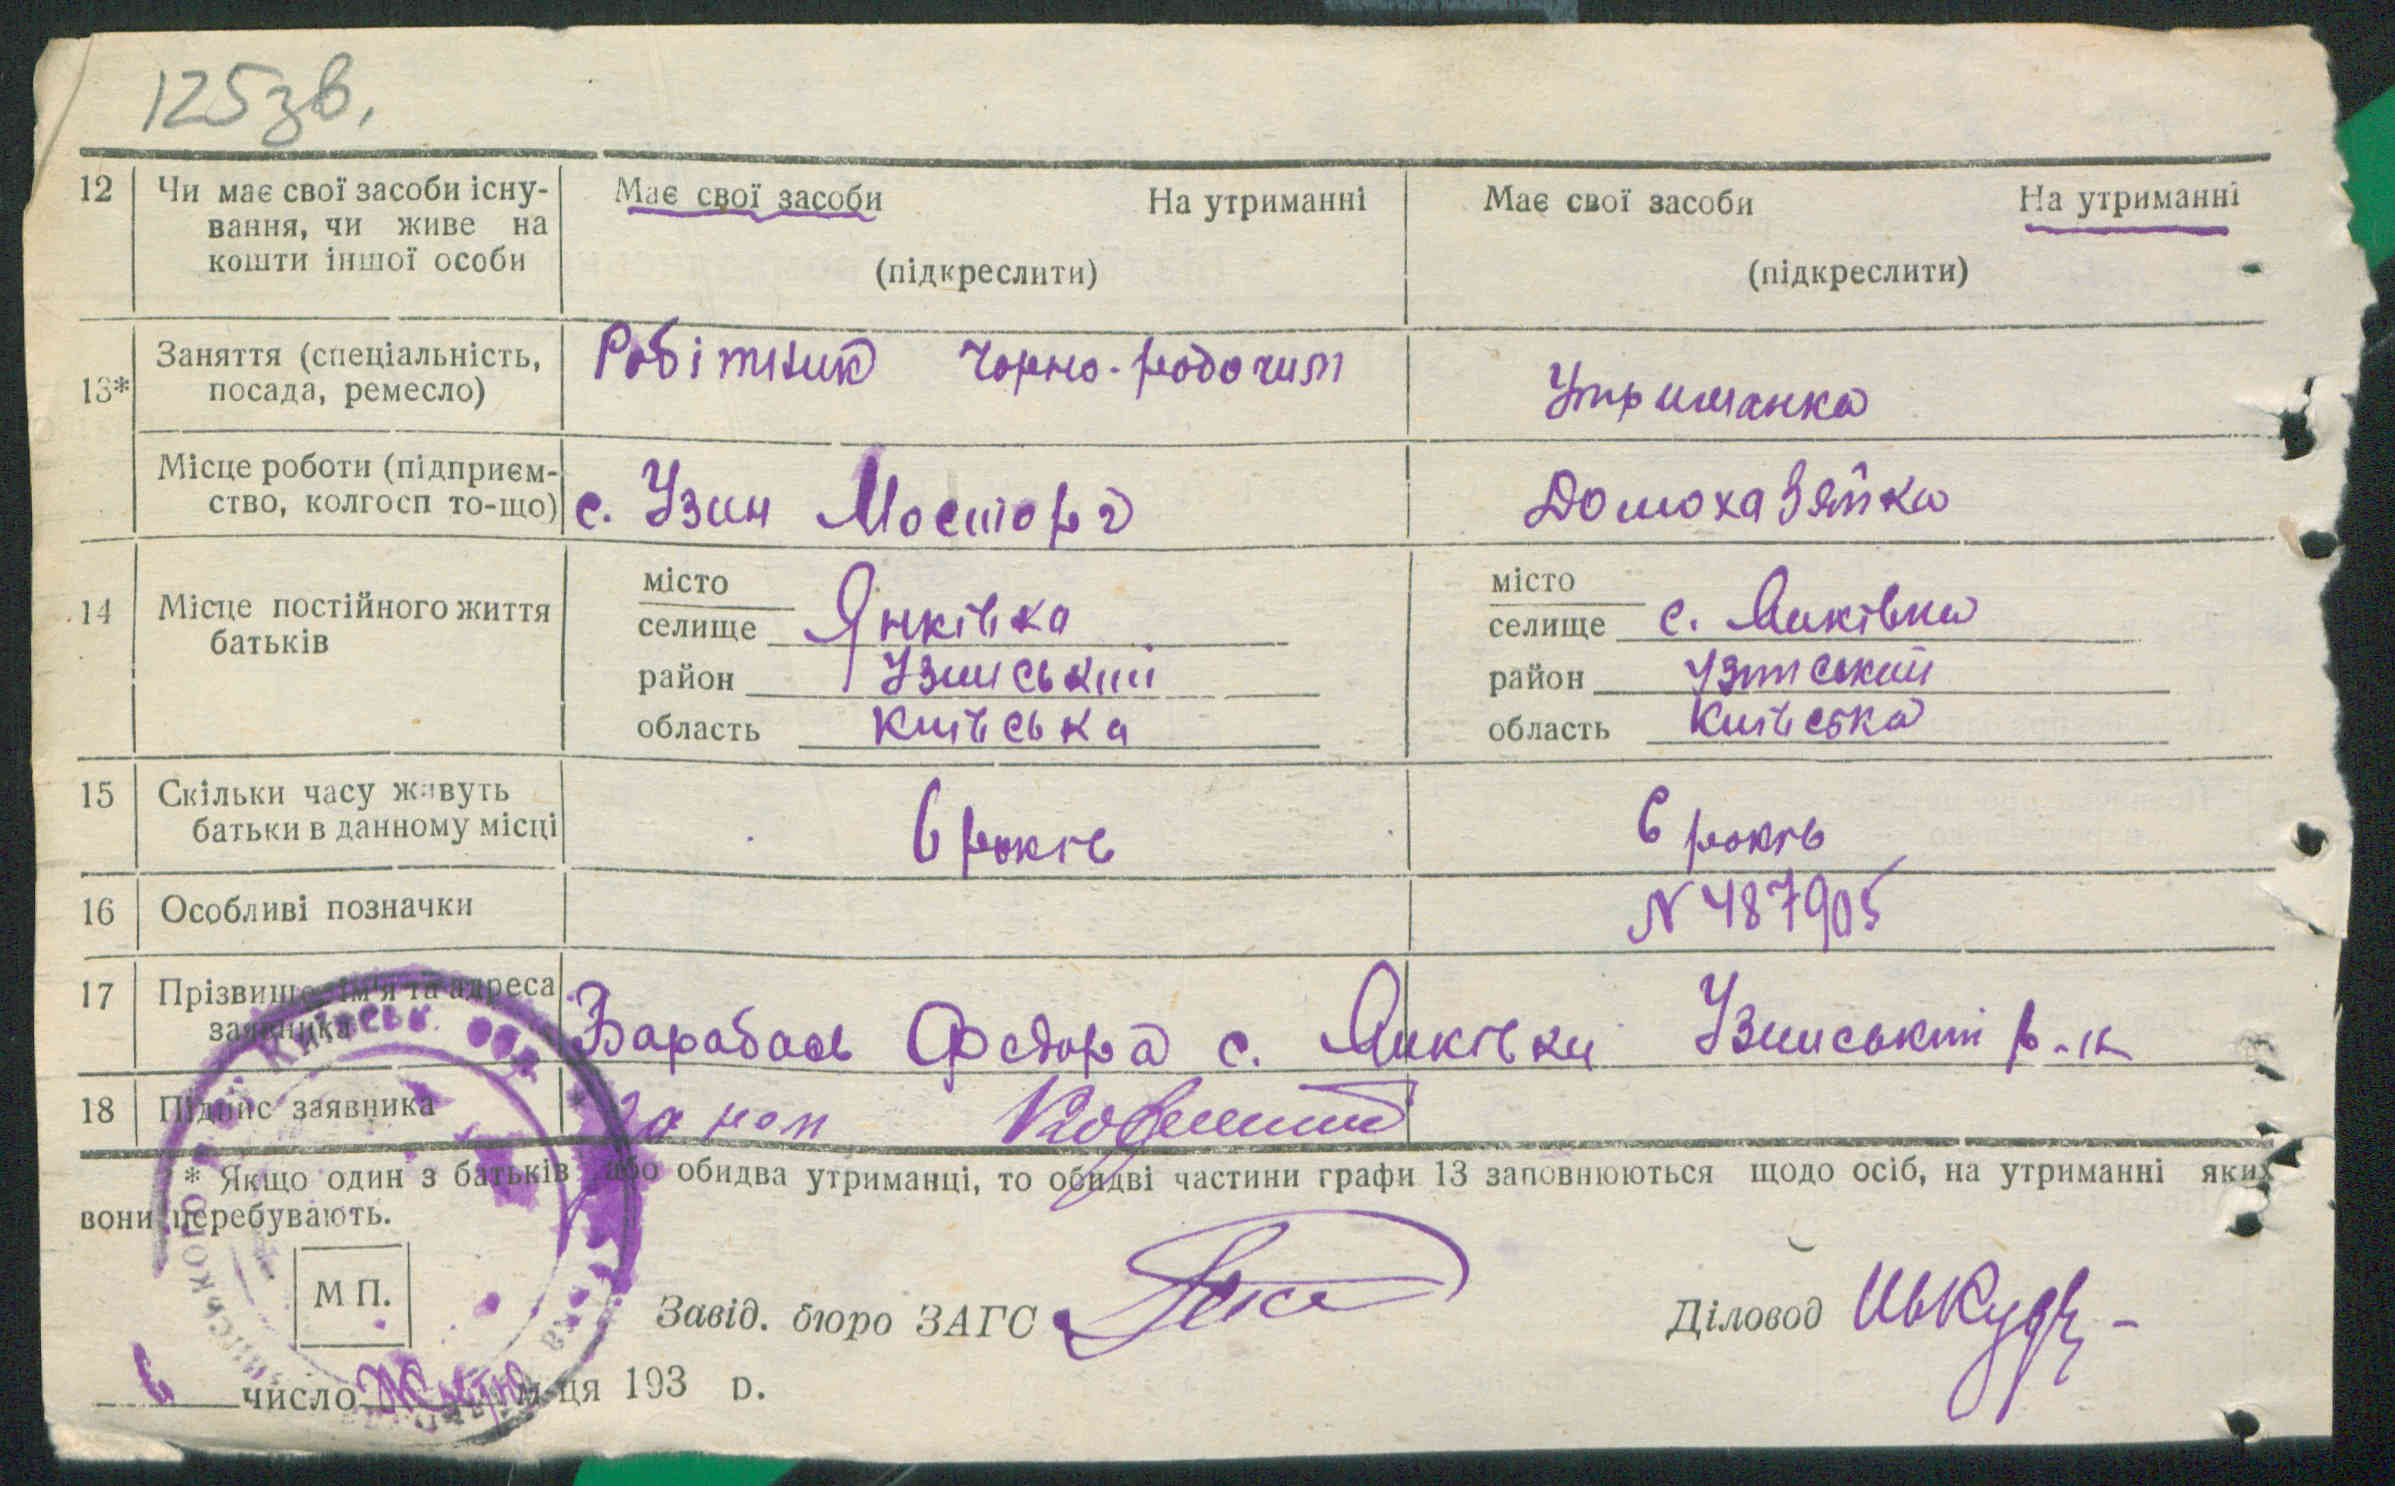 125 зв.
12 Чи має свої засоби існу- Має свої засоби На утриманні Має свої засоби На утриманні
вання, чи живе на
кошти іншої особи (підкреслити) (підкреслити)
Заняття (спеціальність, Робітник Чорно-робочий
13* посада, ремесло) Утриманка
Місце роботи (підприєм-
ство, колгосп то-що) с. Узин Мосторг Домохазяйка
місто місто
14 Місце постійного життя селище Янківка селище с. Янківка
батьків район Узинський район Узинський
область Київська область Київська
15 Скільки часу живуть
батьки в данному місці 6 років 6 років
16 Особливі позначки N 487905
17 Прізвище, ім'я та адреса
заявника Барабаш Федора с. Янківки Узинський р-н
18 Підпис заявника За неп
* Якщо один з батьків або обидва утриманці, то обидві частини графи 13 заповнюються щодо осіб, на утриманні яких
вони перебувають.
М П.
Завід. бюро ЗАГС Діловод
6 число Жовтня м-ця 193 р.